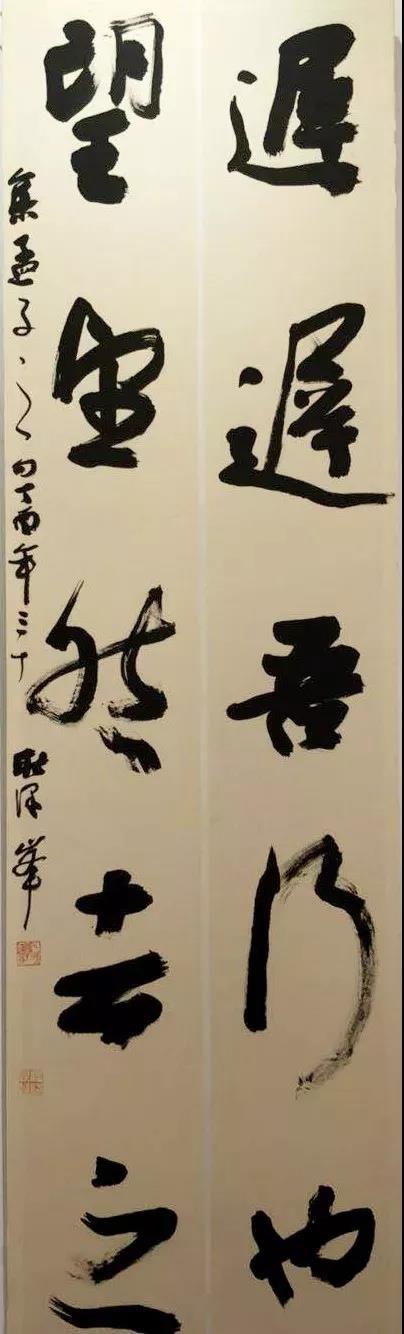 遲遲吾行也
望望然去之
集孟子之句丁酉年三十 耿澤峯